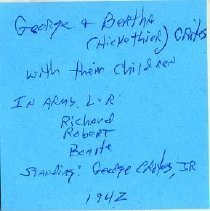 George & Bertha
(Hickethier) Crites
with their children
IN ARMS L-R:
Richard
Robert
Bonita
STANDING: George Crites, JR
1942